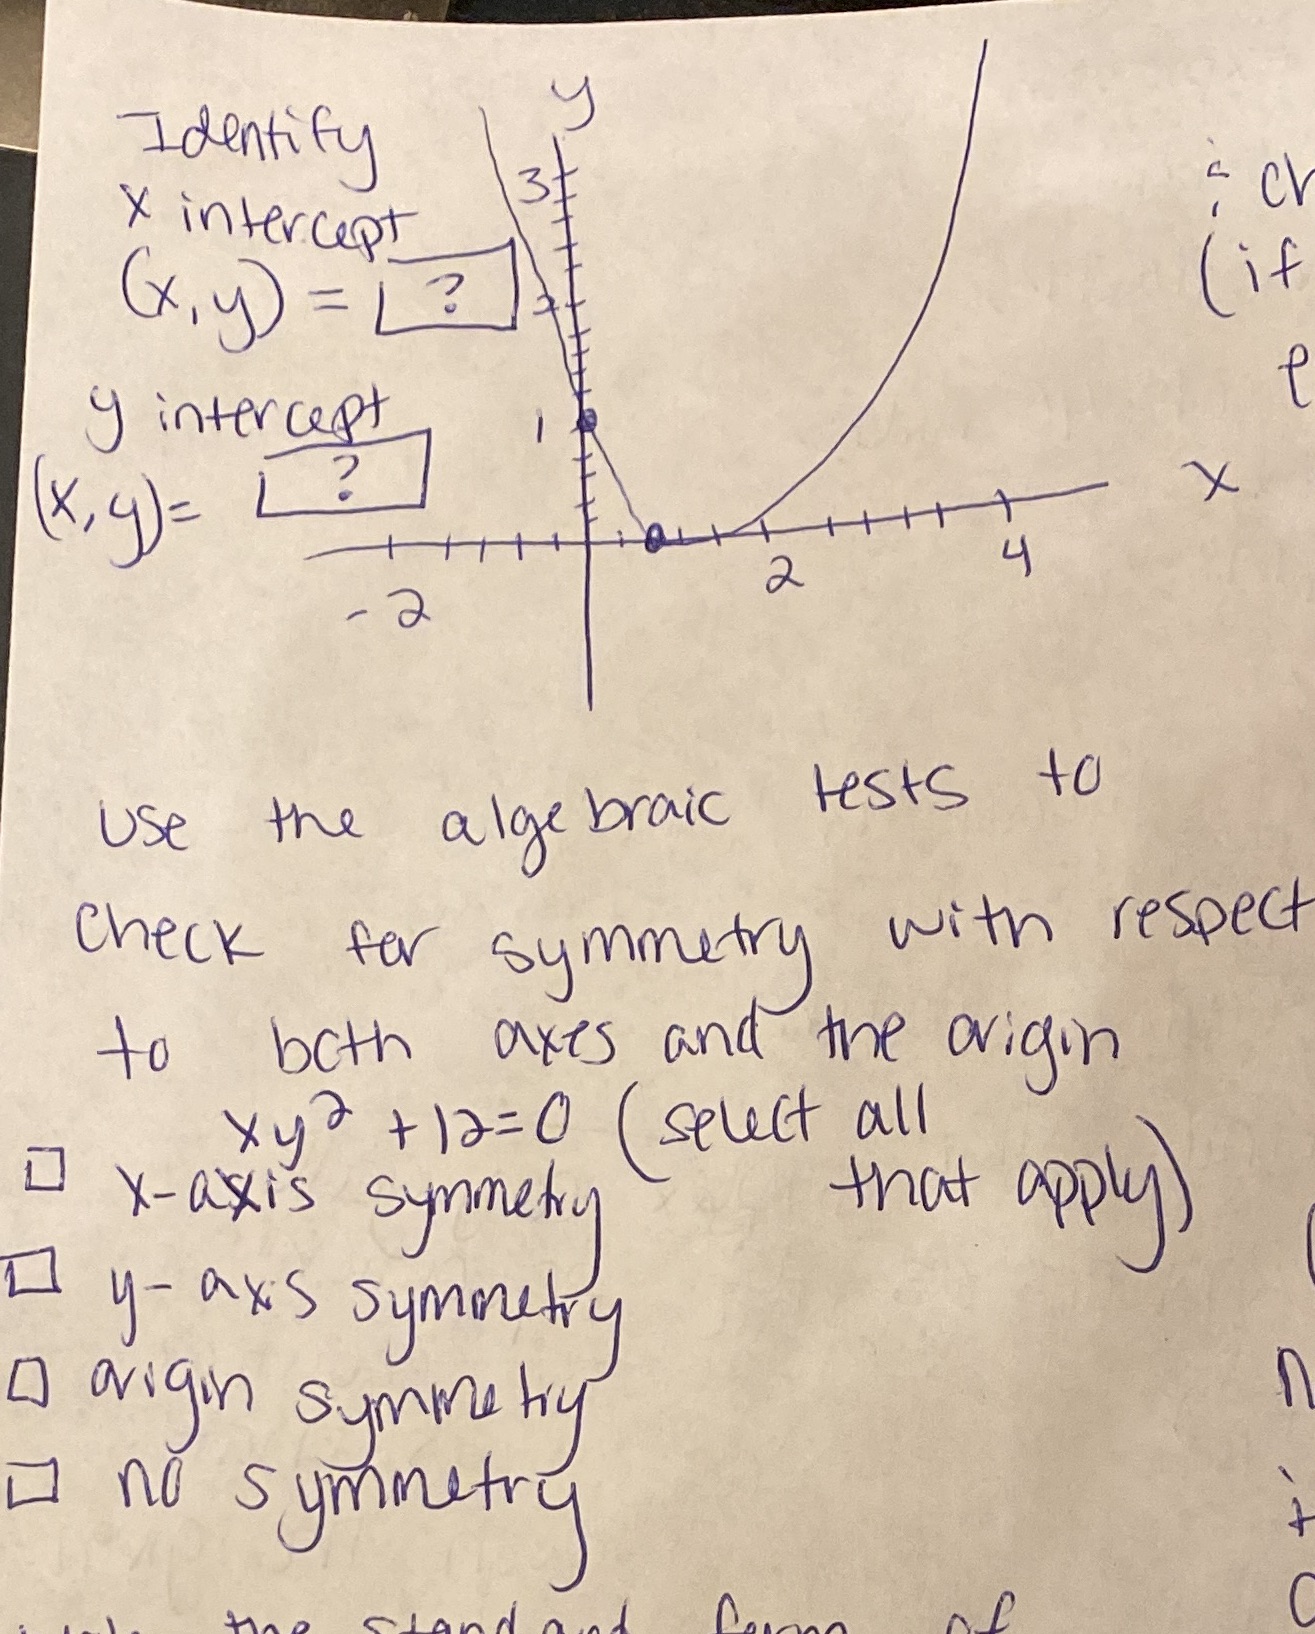 y
Identify
x intercept
(x,y) = ?
3
2
1
y intercept
(x,y)= ?
x
-2
2
4
: ch
(if
Use the algebraic tests to
check for symmetry with respect
to both axes and the origin
xy² +12=0 (select all
that apply)
x-axis symmetry
y-axis symmetry
origin symmetry
no symmetry
the standard form of